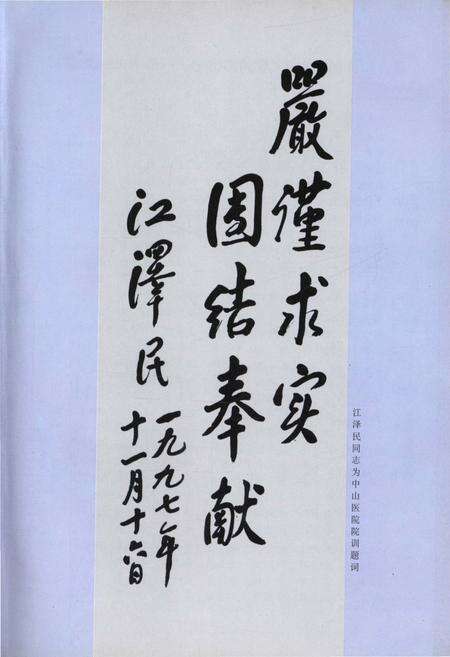 嚴谨求实
團结奉献
江澤民
一九九七年
十一月十六日
江泽民同志为中山医院院训题词